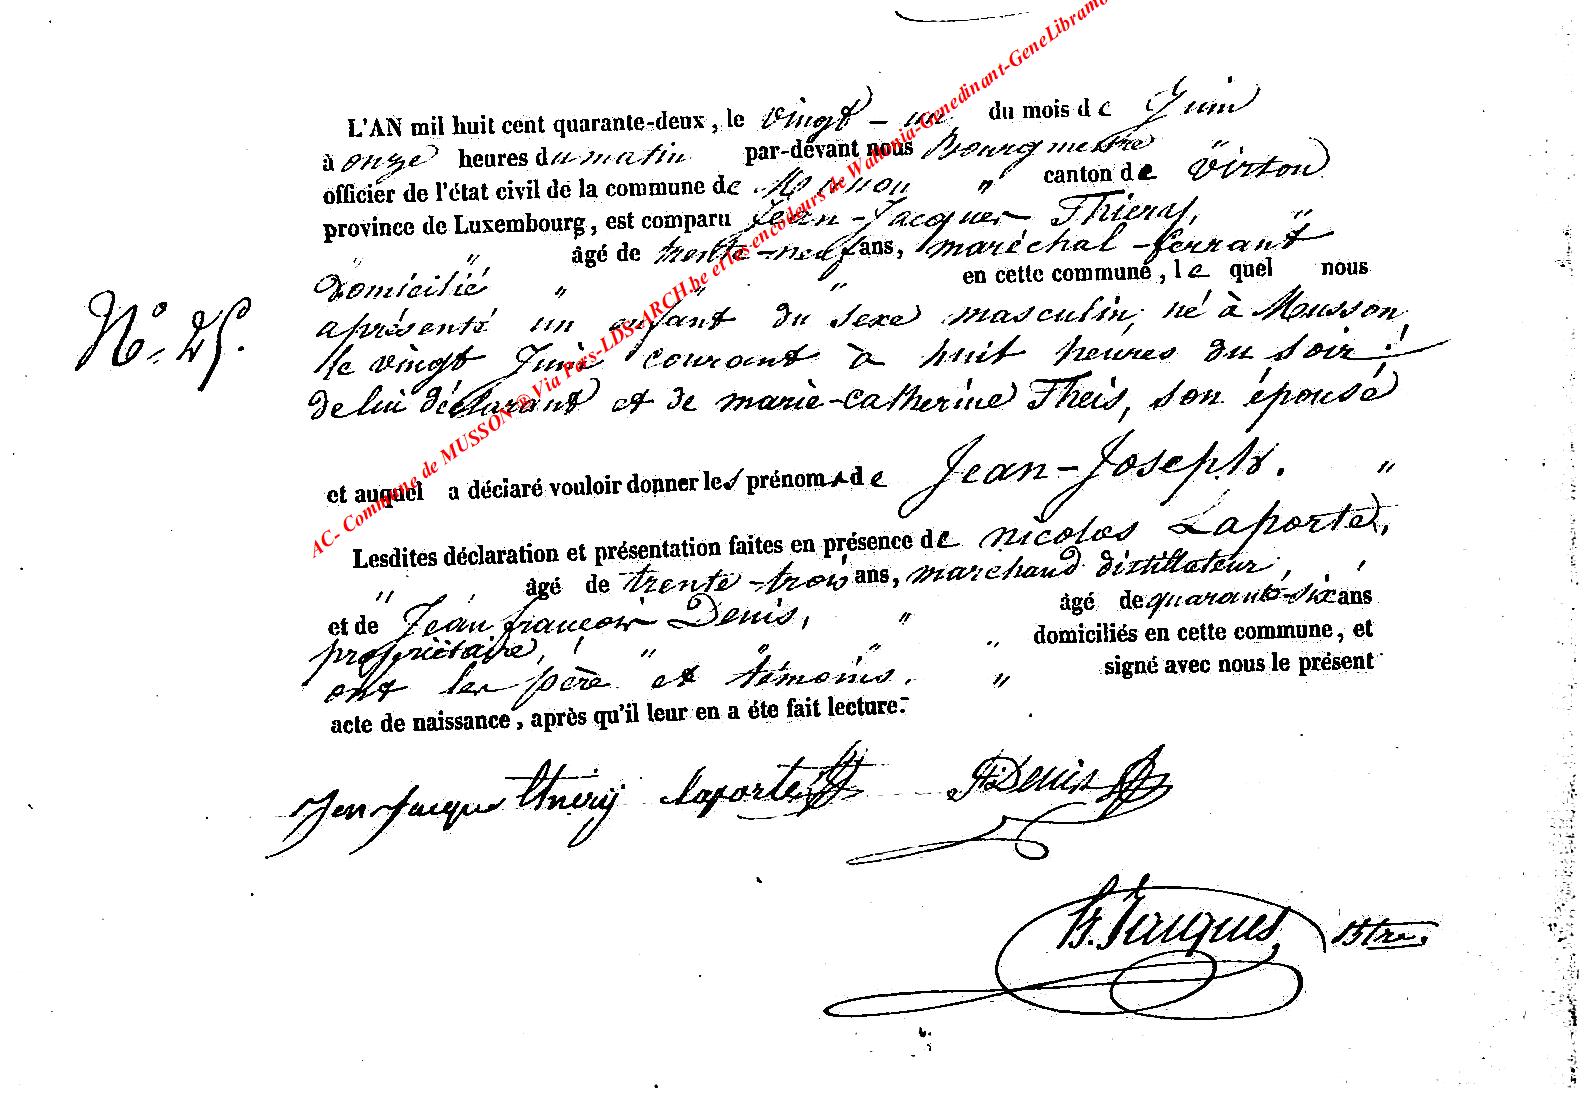 AC- Commune de MUSSON®Via Pays-LDS-ARCH.be et les encodeurs de Wallonia-Genedinant-GeneLibramo
L'AN mil huit cent quarante-deux, le vingt-un du mois de Juin
à onze heures du matin par-dévant nous Bourgmestre "
officier de l'état civil de la commune de Musson " canton de Virton
province de Luxembourg, est comparu Jean-Jacques Thiery, "
" " âgé de trente-neuf ans, maréchal-ferrant
Domicilié " " " en cette commune, le quel nous
a présenté un enfant du sexe masculin, né à Musson,
le vingt Juin courant à huit heures du soir !
de lui déclarant et de marie-catherine Theis, son épouse
N° 25.
et auquel a déclaré vouloir donner les prénoms de Jean-Joseph. "
Lesdites déclaration et présentation faites en présence de nicolas Laporte,
" âgé de trente-trois ans, marchand distillateur,
et de Jean françois Denis, " âgé de quarante-six ans
propriétaire, " " " " domiciliés en cette commune, et
ont les père et témoins. " signé avec nous le présent
acte de naissance, après qu'il leur en a éte fait lecture.
Jen Jacque thiery laporte Denis
Jacques, Btre.